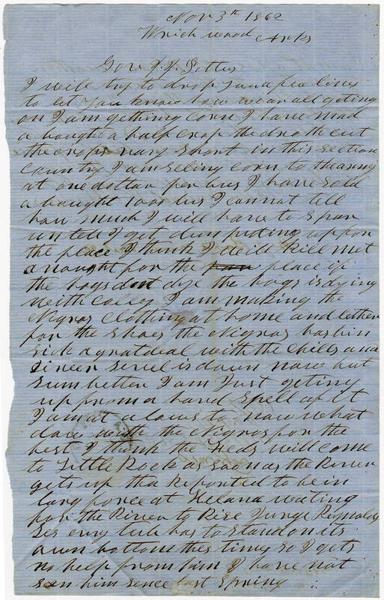 Nov 3th 1862
Wrightwood Arks
Gov J. J. Sitter
I will try to drop you a few lines
to let you know how we are all geting
on I am gethering corn I have mad
a bought a half crop the drouth cut
the crops vary short in this section
country I am seling corn to the army
at one dollar per bus I have sold
a bought 1000 bus I cannot tell
how much I will have to spar
un tell I get dun puting up on
the place I think I will kill met
a nought for the place if
the hogs dont dye the hogs is dying
with coley I am making the
Negros clothing at home and lether
for the shoes the Negros has bin
sick a great deal with the chills a
sever is down now but
sum better I am Just geting
up from a hard spell of it
I am at a loss to now what
dow with the Negros for the
best I think the Feds will come
to Little Rock as soon as the River
gets up tha Reported to be in
larg force at Helana wating
for the River to Rise Junge
Ses evry tub has to stand on its
own bottom thes times so I gets
no help from him I have not
sean him sence last Spring